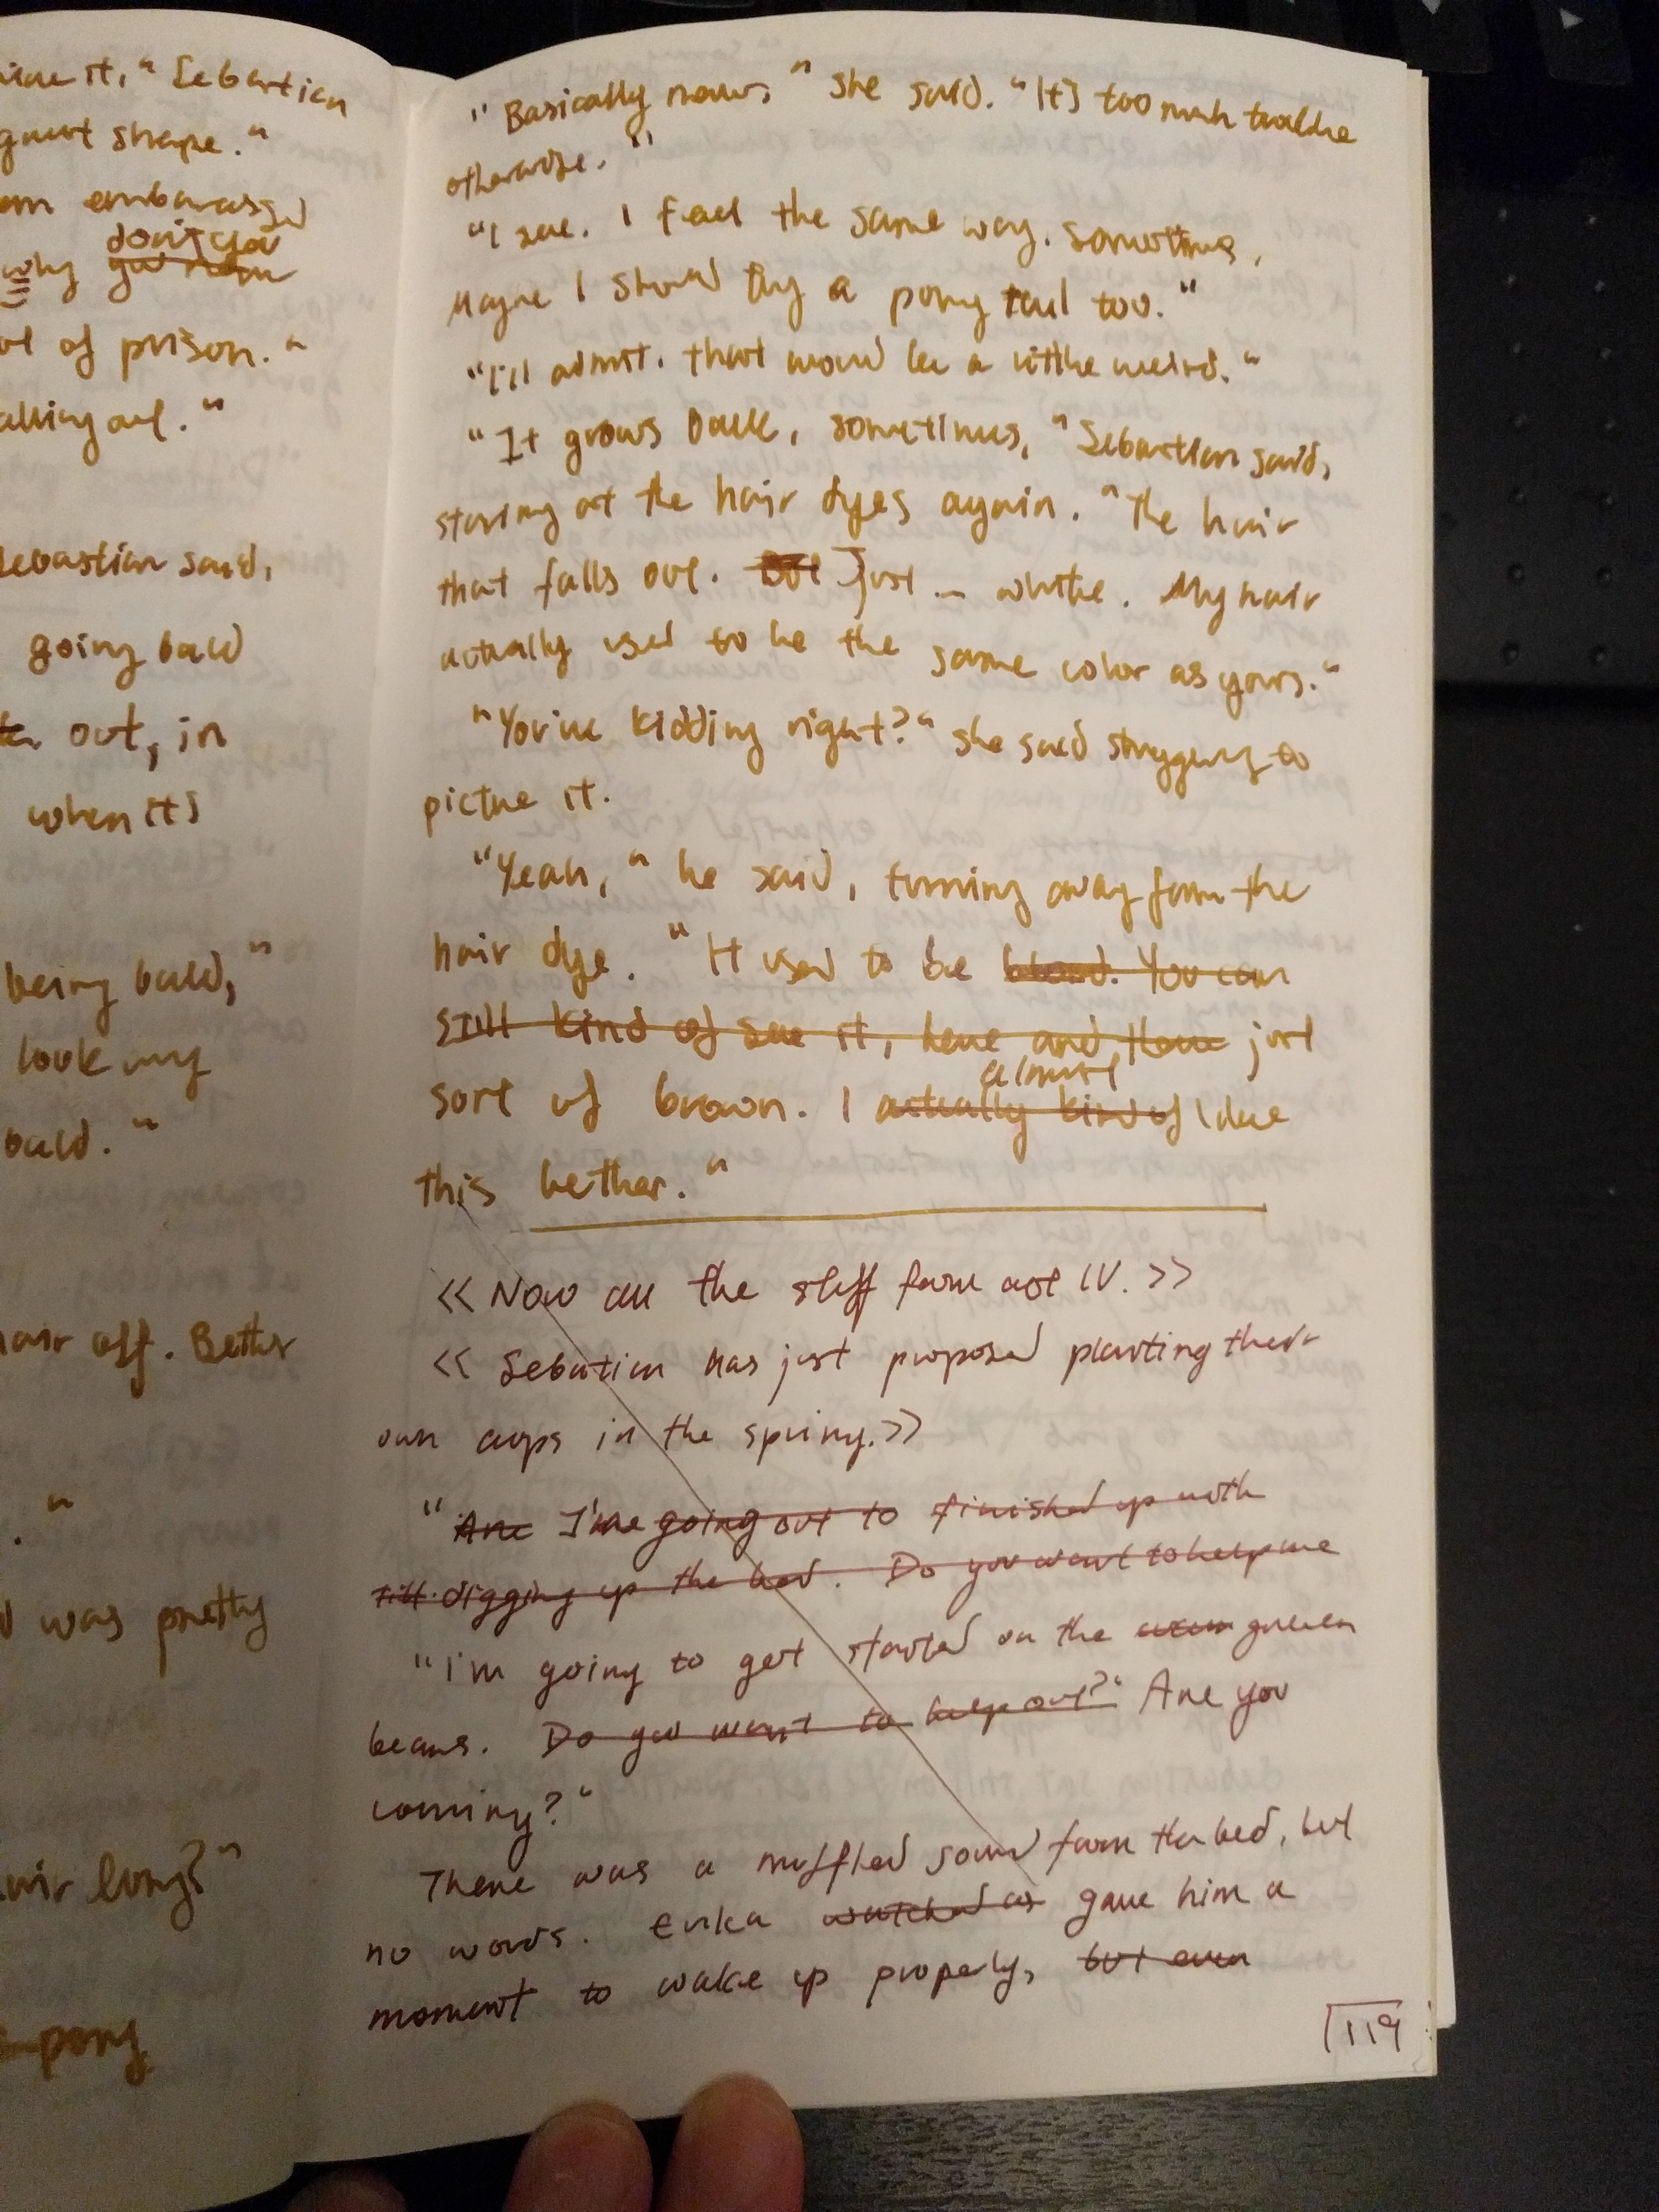 it," Sebastian
shape."
embarassed
don't you
why
of prison."
out."
Sebastian said,
going bald
out, in
when it's
being bald,"
look my
bald."
hair off. Better
."
was pretty
hair long?"
pony
"Basically never," she said. "It's too much trouble
otherwise."
"I see. I feel the same way, sometimes,
Maybe I should try a pony tail too."
"I'll admit, that would be a little weird."
"It grows back, sometimes," Sebastian said,
staring at the hair dyes again. "The hair
that falls out. But Just — white. My hair
actually used to be the same color as yours."
"You're kidding right?" she said struggling to
picture it.
"Yeah," he said, turning away from the
hair dye. "It used to be blond. You can
still kind of see it, here and there just
almost
sort of brown. I actually kind of like
this better."
<< Now all the stuff from act IV. >>
<< Sebastian has just proposed planting their
own crops in the spring. >>
"Are I'me going out to finished up with
till digging up the bed. Do you want to help me
"I'm going to get started on the green
beans. Do you want to help out?" Are you
coming?"
There was a muffled sound from the bed, but
no words. Erika watched as gave him a
moment to wake up properly, but even
119